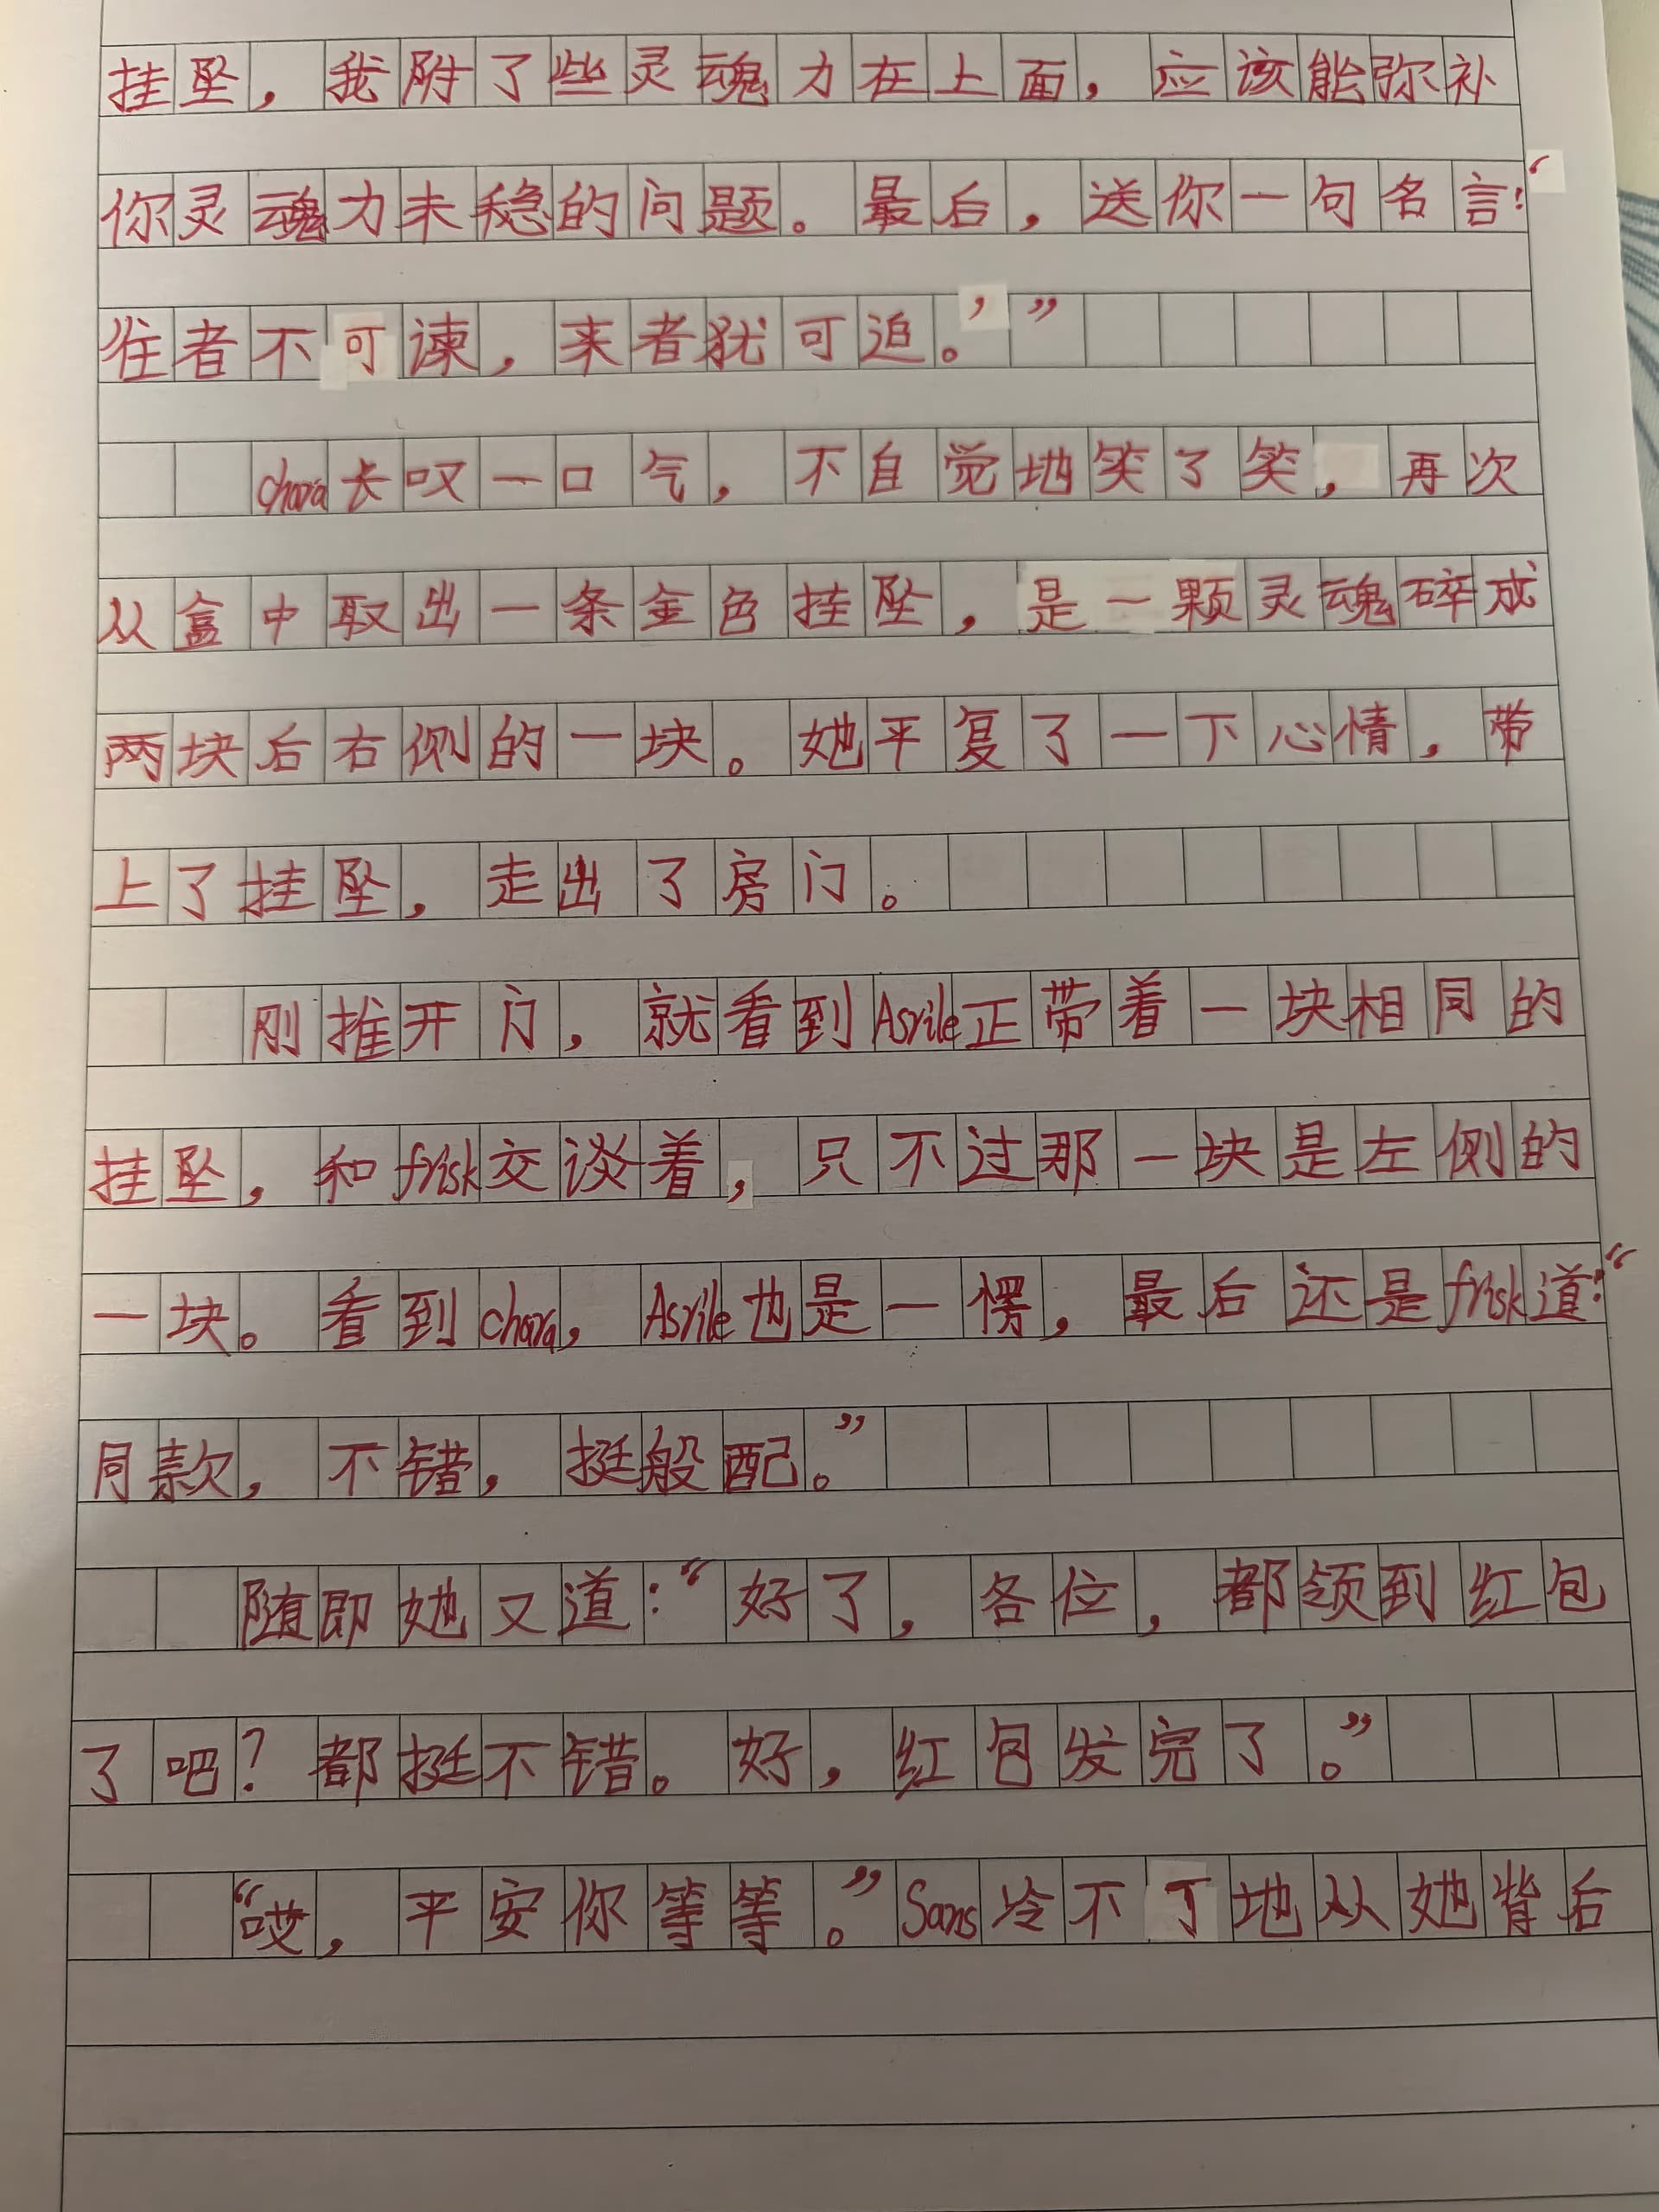 挂坠，我附了些灵魂力在上面，应该能弥补
你灵魂力未稳的问题。最后，送你一句名言：‘
往者不可谏，来者犹可追。’”
chara长叹一口气，不自觉地笑了笑，再次
从盒中取出一条金色挂坠，是一颗灵魂碎成
两块后右侧的一块。她平复了一下心情，带
上了挂坠，走出了房门。
刚推开门，就看到Asrile正带着一块相同的
挂坠，和frisk交谈着，只不过那一块是左侧的
一块。看到chara，Asrile也是一愣，最后还是frisk道：“
同款，不错，挺般配。”
随即她又道：“好了，各位，都领到红包
了吧？都挺不错。好，红包发完了。”
“哎，平安你等等。”Sans冷不丁地从她背后